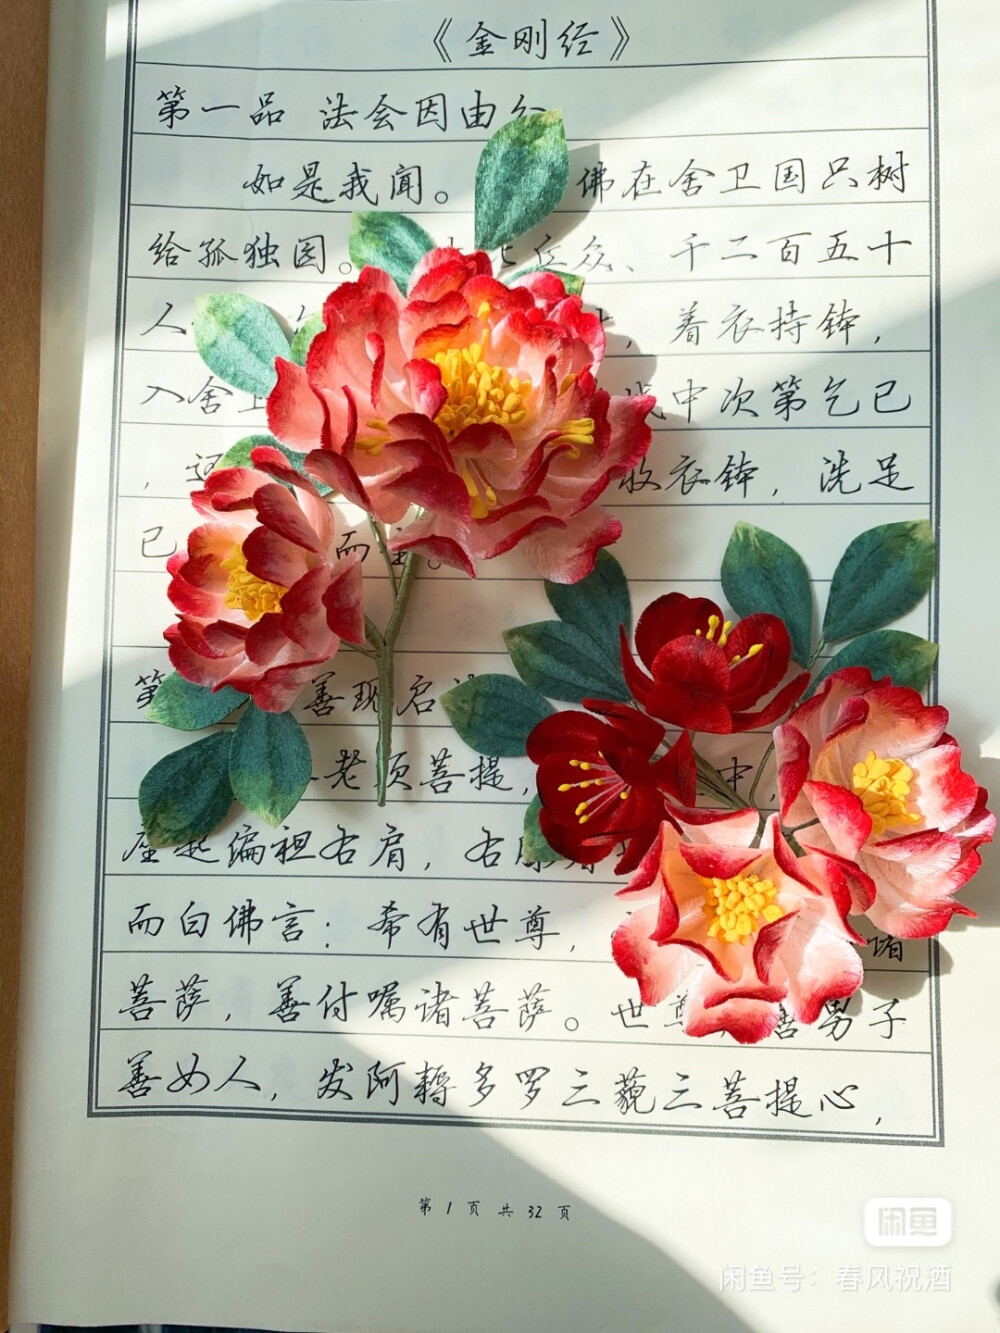 《金刚经》
第一品 法会因由分
如是我闻。 佛在舍卫国只树
给孤独园。 丘众、千二百五十
人 着衣持钵，
入舍卫 城中次第乞已
，还 收衣钵，洗足
已 而坐。
第 善现启请
老须菩提， 中，
座起偏袒右肩，右膝着
而白佛言：希有世尊， 诸
菩萨，善付嘱诸菩萨。世尊，善男子
善女人，发阿耨多罗三藐三菩提心，
第 1 页 共 32 页
闲鱼
闲鱼号：春风祝酒